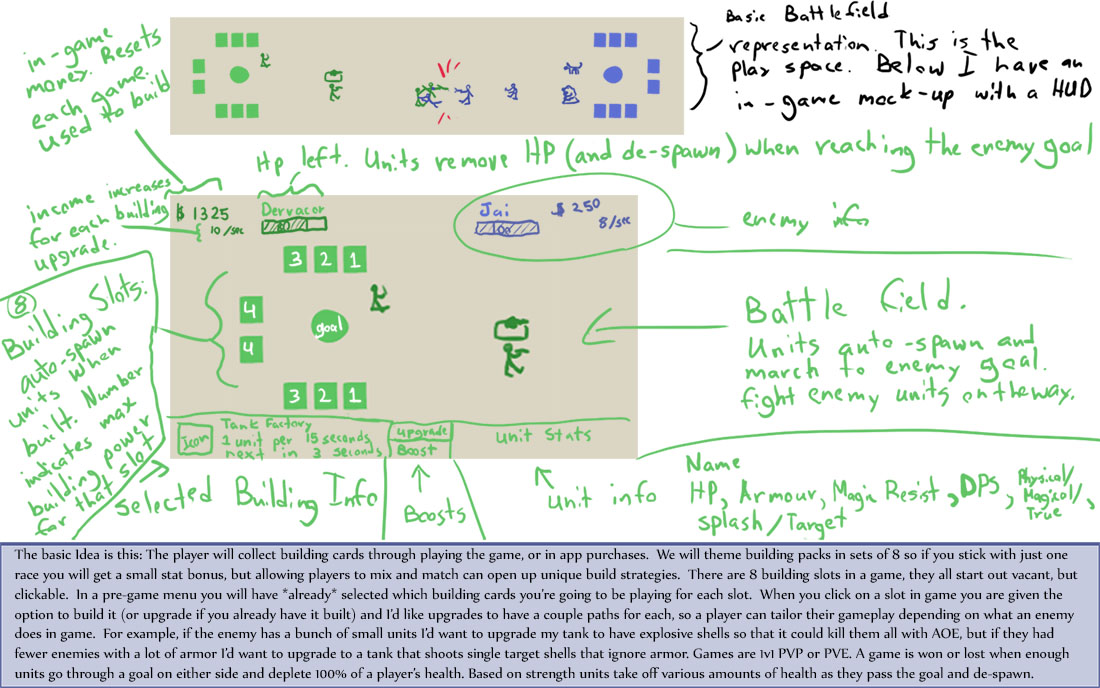 Basic Battlefield
representation. This is the
play space. Below I have an
in-game mock-up with a HUD
in-game
money. Resets
each game.
used to build
Hp left. Units remove HP (and de-spawn) when reaching the enemy goal
income increases
for each building
upgrade.
$ 1325
10 /sec
Dervacor
80
Jai
100
$ 250
8/sec
enemy info
3 2 1
4
goal
4
3 2 1
8
Building Slots:
auto-spawn
units when
built. Number
indicates max
building power
for that slot
Battle field.
Units auto-spawn and
march to enemy goal.
fight enemy units on the way.
Icon
Tank Factory
1 unit per 15 seconds
next in 3 seconds
upgrade
Boost
Unit Stats
Selected Building Info
Boosts
Unit info
Name
HP, Armour, Magic Resist, DPS, Physical/
Magical/
True,
Splash/Target
The basic Idea is this: The player will collect building cards through playing the game, or in app purchases. We will theme building packs in sets of 8 so if you stick with just one
race you will get a small stat bonus, but allowing players to mix and match can open up unique build strategies. There are 8 building slots in a game, they all start out vacant, but
clickable. In a pre-game menu you will have *already* selected which building cards you're going to be playing for each slot. When you click on a slot in game you are given the
option to build it (or upgrade if you already have it built) and I'd like upgrades to have a couple paths for each, so a player can tailor their gameplay depending on what an enemy
does in game. For example, if the enemy has a bunch of small units I'd want to upgrade my tank to have explosive shells so that it could kill them all with AOE, but if they had
fewer enemies with a lot of armor I'd want to upgrade to a tank that shoots single target shells that ignore armor. Games are 1v1 PVP or PVE. A game is won or lost when enough
units go through a goal on either side and deplete 100% of a player's health. Based on strength units take off various amounts of health as they pass the goal and de-spawn.